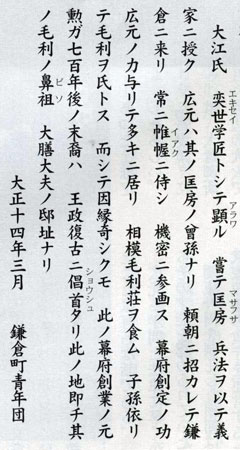 大江氏　奕世学匠トシテ顕ル　嘗テ匡房　兵法ヲ以テ義
家ニ授ク　広元ハ其ノ匡房ノ曽孫ナリ　頼朝ニ招カレテ鎌
倉ニ来リ　常ニ帷幄ニ侍シ　機密ニ参画ス　幕府創定ノ功
広元ノ力与リテ多キニ居リ　相模毛利荘ヲ食ム　子孫依リ
テ毛利ヲ氏トス　而シテ因縁奇シクモ　此ノ幕府創業ノ元
勲ガ七百年後ノ末裔ハ　王政復古ニ倡首タリ此ノ地即チ其
ノ毛利ノ鼻祖　大膳大夫ノ邸址ナリ
大正十四年三月　鎌倉町青年団
エキセイ
アラワ
マサフサ
イアク
ショウシュ
ビソ